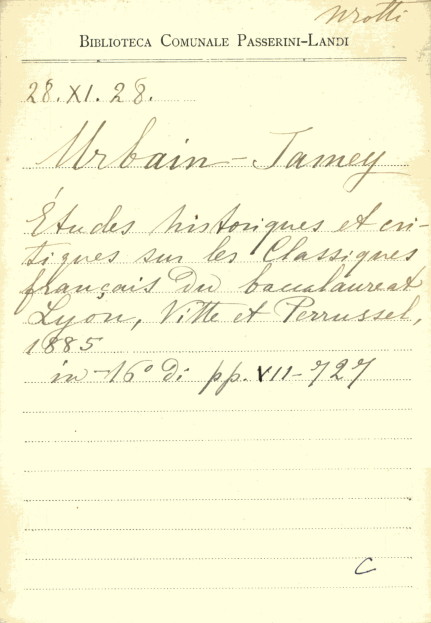 Nrotti
BIBLIOTECA COMUNALE PASSERINI-LANDI
28.XI.28.
Urbain-Jamey
Études historiques et cri-
tiques sur les Classiques
français du baccalaureat
Lyon, Vitte et Perrussel,
1885
in-16° di pp. VII-727
C